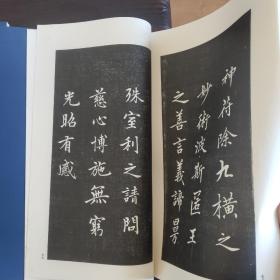 神符除九横之
妙術波斯匿王
之善言義諦曼
殊室利之請問
慈心博施無窮
光昭有感